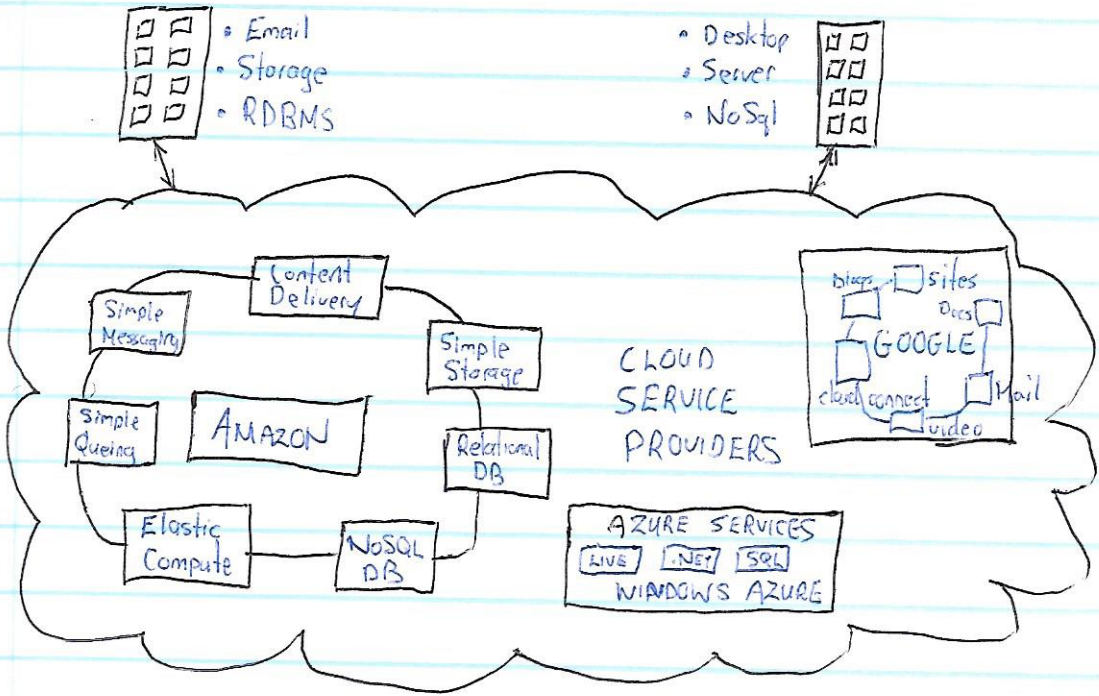 • Email
• Storage
• RDBMS
• Desktop
• Server
• NoSql
Content
Delivery
Simple
Messaging
Simple
Storage
Simple
Queing
AMAZON
Relational
DB
Elastic
Compute
NoSQL
DB
CLOUD
SERVICE
PROVIDERS
Blogs
Sites
Docs
GOOGLE
cloud connect
Mail
video
AZURE SERVICES
LIVE
.NET
SQL
WINDOWS AZURE